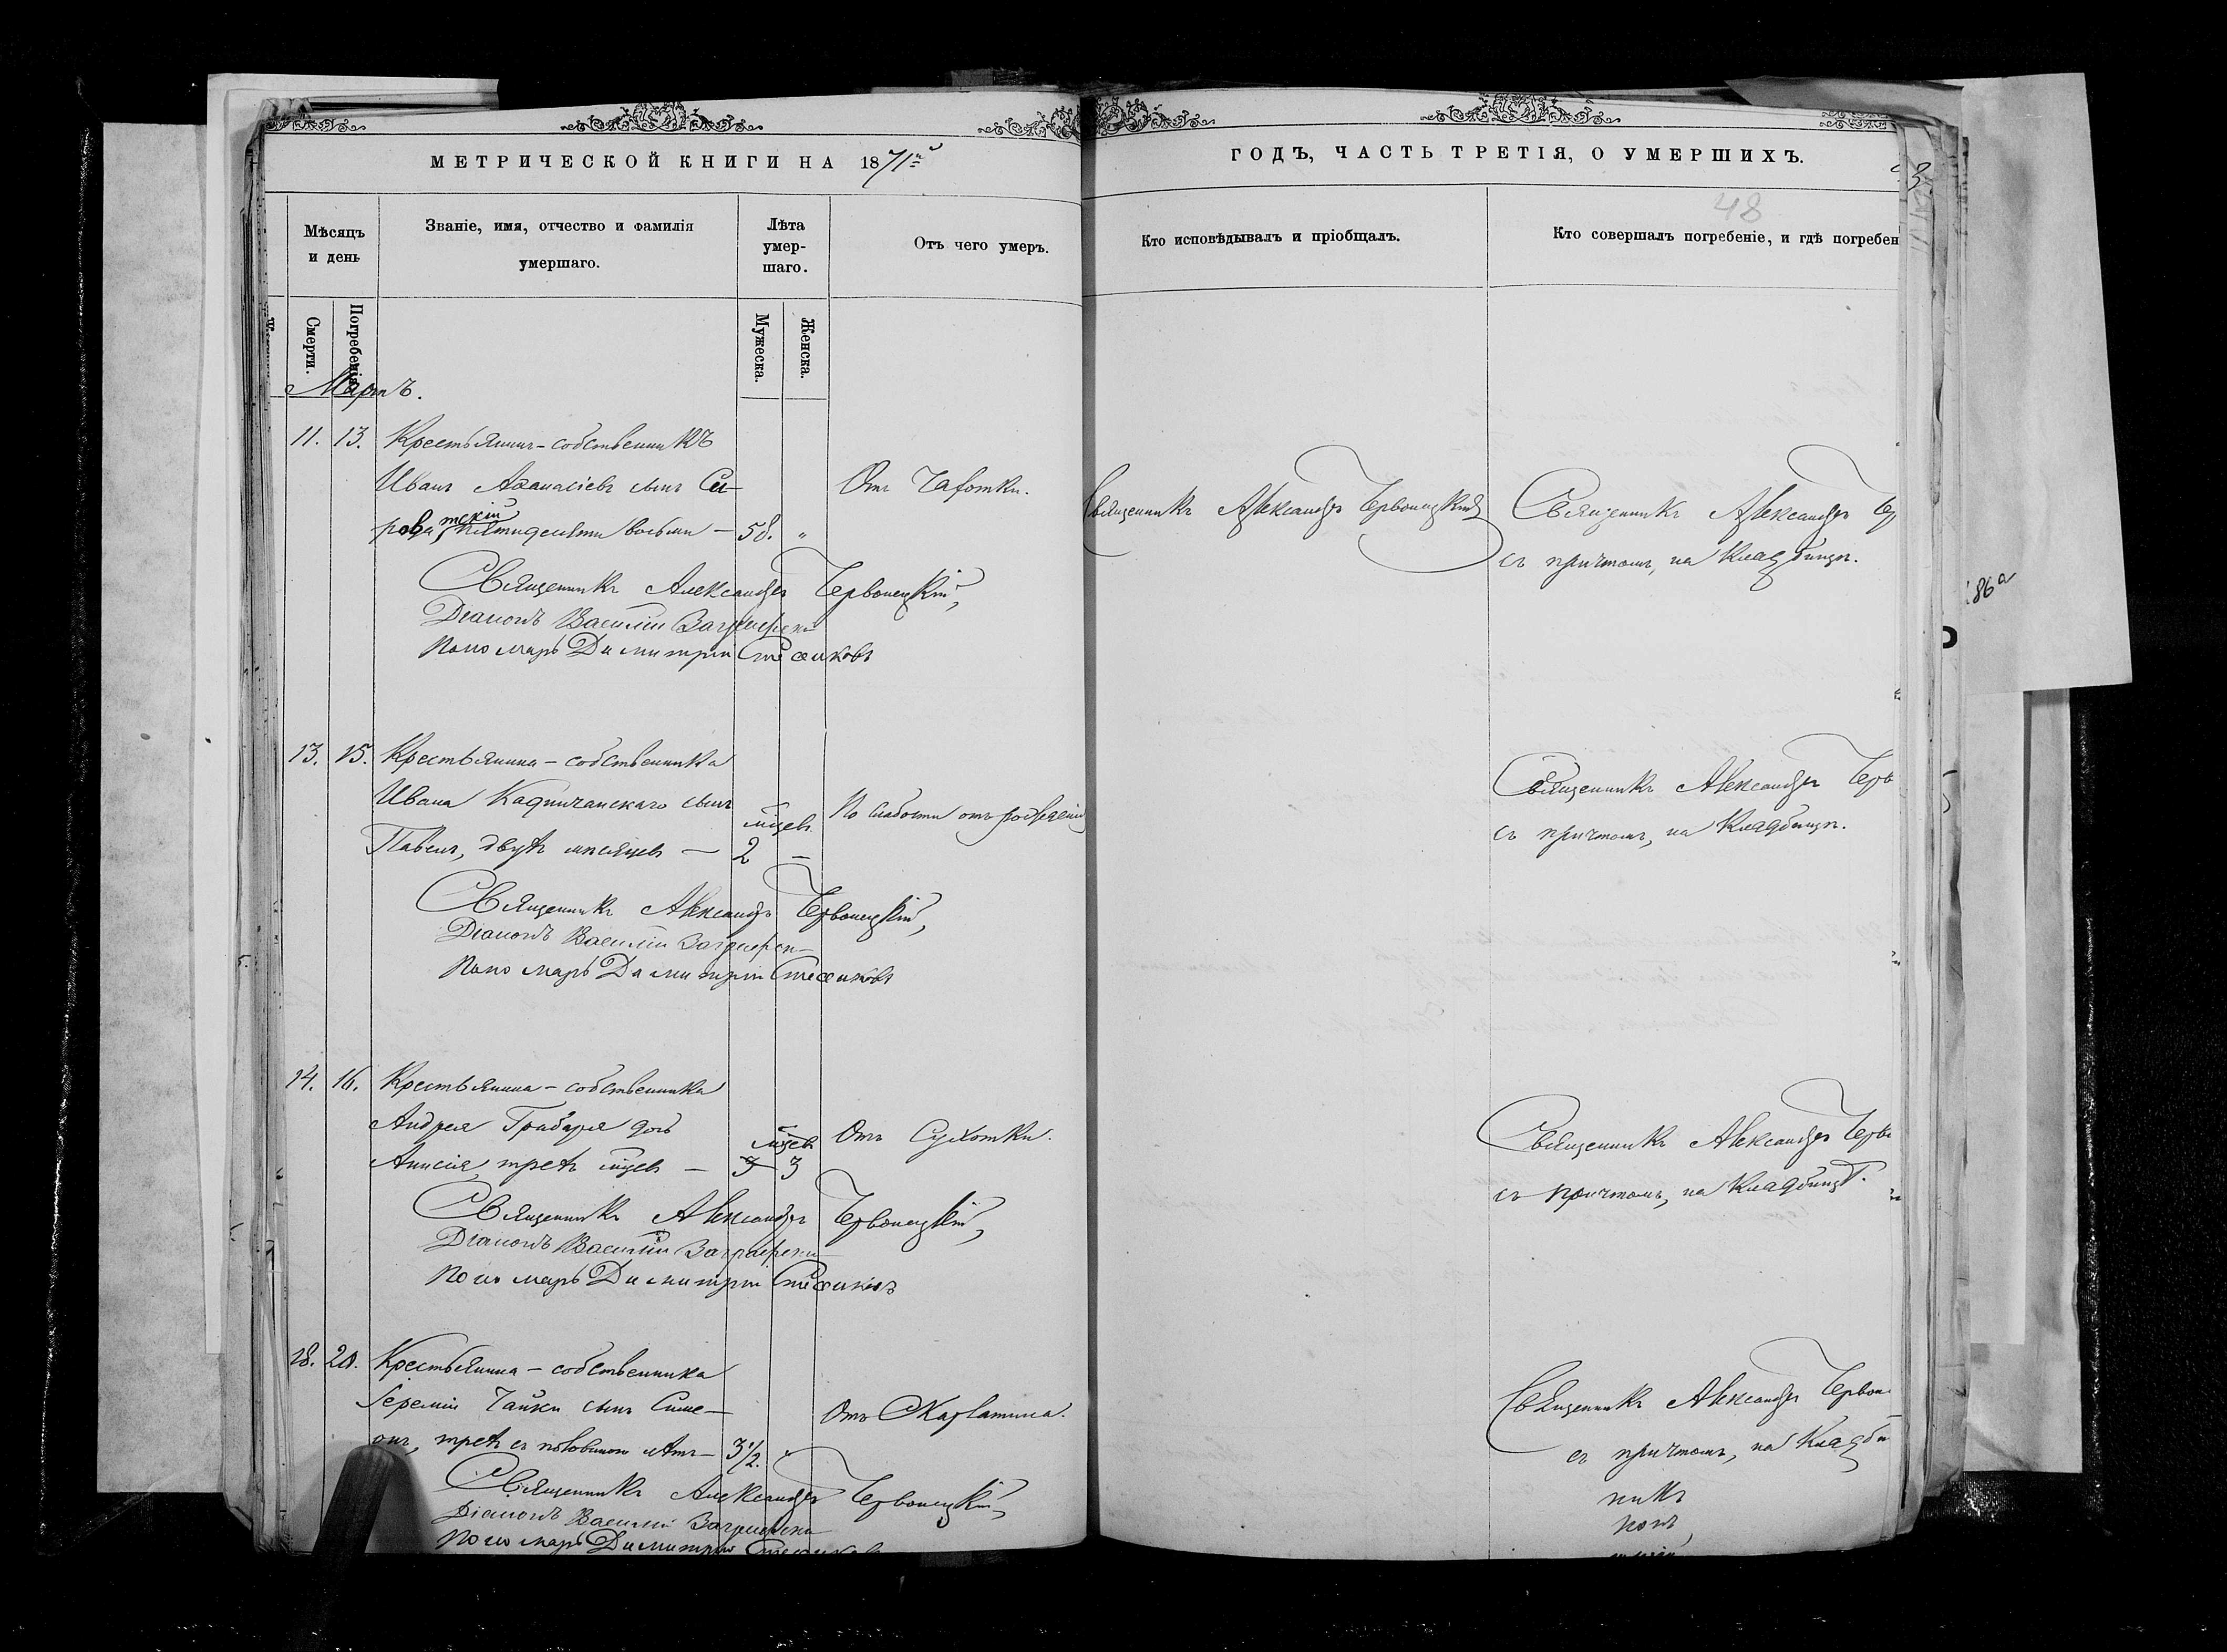 МЕТРИЧЕСКОЙ КНИГИ НА 1871й
ГОДЪ, ЧАСТЬ ТРЕТІЯ, О УМЕРШИХЪ.
48
Мѣсяцъ
и день
Званіе, имя, отчество и фамилія
умершаго.
Лѣта
умер-
шаго.
Отъ чего умеръ.
Кто исповѣдывалъ и пріобщалъ.
Кто совершалъ погребеніе, и гдѣ погребен
Смерти.
Погребенія.
Мужеска.
Женска.
Мартъ.
11. 13. Крестьянинъ-собственникъ
Иванъ Аѳанасіевъ сынъ Си-
пятидесяти восьми — 58. „
Отъ Чахотки.
Священникъ Александръ Червонецкій
Священникъ Александръ Чер
съ причтомъ, на кладбищѣ.
Священникъ Александръ Червонецкій,
Діаконъ Василій
Пономарь Димитрій
13. 15. Крестьянина-собственника
Ивана сынъ
Павелъ, двухъ мѣсяцевъ — мѣцевъ 2 —
По слабости отъ рожденія
Священникъ Александръ Черв
съ причтомъ, на кладбищѣ.
Священникъ Александръ Червонецкій,
Діаконъ Василій
Пономарь Димитрій
14. 16. Крестьянина-собственника
Андрея Грабаря дочь
Анисія, трехъ мѣцевъ — мѣцевъ 3
Отъ Сухотки.
Священникъ Александръ Черв
съ причтомъ, на кладбищѣ.
Священникъ Александръ Червонецкій,
Діаконъ Василій
Пономарь Димитрій
18. 20. Крестьянина-собственника
Іереміи Чайки сынъ Симе-
онъ, трехъ съ половиною лѣтъ — 3½. „
Отъ Скарлатина.
Священникъ Александръ Червон
съ причтомъ, на кладби
Священникъ Александръ Червонецкій,
Діаконъ Василій
Пономарь Димитрій
никъ
конъ,
86а